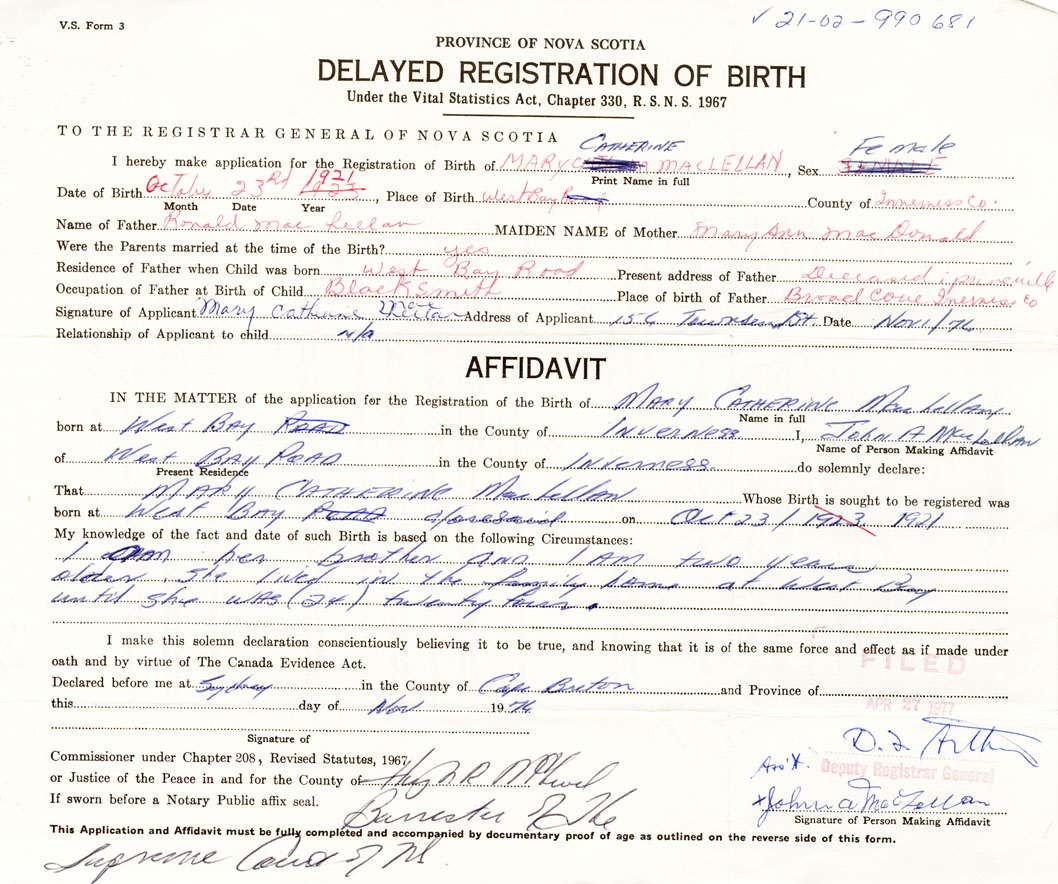 V.S. Form 3
✓ 21-02-990681
PROVINCE OF NOVA SCOTIA
DELAYED REGISTRATION OF BIRTH
Under the Vital Statistics Act, Chapter 330, R. S. N. S. 1967
TO THE REGISTRAR GENERAL OF NOVA SCOTIA
I hereby make application for the Registration of Birth of MARY CATHERINE MACLELLAN, Sex Female
Print Name in full
Date of Birth October 23rd 1921, Place of Birth West Bay Road County of Inverness Co.
Month Date Year
Name of Father Ronald Mac Lellan MAIDEN NAME of Mother Mary Ann Mac Donald
Were the Parents married at the time of the Birth? yes
Residence of Father when Child was born West Bay Road Present address of Father Deceased
Occupation of Father at Birth of Child BlackSmith Place of birth of Father Broad Cove Inverness Co
Signature of Applicant Mary Catherine Mac Address of Applicant 156 Townsend St. Date Nov 1/76
Relationship of Applicant to child n/a
AFFIDAVIT
IN THE MATTER of the application for the Registration of the Birth of MARY CATHERINE MacLellan
Name in full
born at West BAY ROAD in the County of INVERNESS I, John A MacLellan
Name of Person Making Affidavit
of West BAY ROAD in the County of INVERNESS do solemnly declare:
Present Residence
That MARY CATHERINE MacLellan Whose Birth is sought to be registered was
born at West BAY ROAD on Oct 23/ 1923 1921
My knowledge of the fact and date of such Birth is based on the following Circumstances:
I am her brother and I AM two years
older. She lived in the family home at West Bay
until she WAS (24) twenty four.
I make this solemn declaration conscientiously believing it to be true, and knowing that it is of the same force and effect as if made under
oath and by virtue of The Canada Evidence Act.
FILED
Declared before me at Sydney in the County of Cape Breton and Province of
this day of Nov 1976
APR 27 1977
Signature of
Commissioner under Chapter 208, Revised Statutes, 1967
or Justice of the Peace in and for the County of Hugh R
If sworn before a Notary Public affix seal.
Barrister of the
Supreme Court of NS.
D. F. Arthur
Ass't. Deputy Registrar General
x John A MacLellan
Signature of Person Making Affidavit
This Application and Affidavit must be fully completed and accompanied by documentary proof of age as outlined on the reverse side of this form.